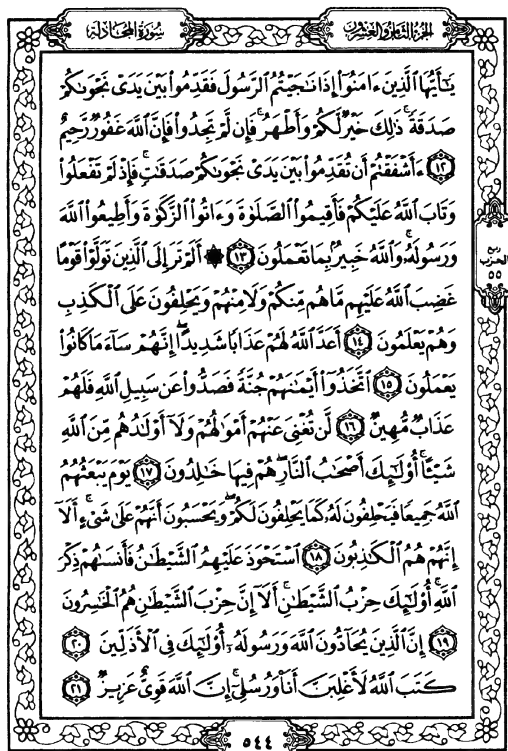 سُورَةُ المُجَادلَة
الجُزْءُ الثَّامِنُ وَالعِشْرُون
يَٰٓأَيُّهَا ٱلَّذِينَ ءَامَنُوٓا۟ إِذَا نَٰجَيْتُمُ ٱلرَّسُولَ فَقَدِّمُوا۟ بَيْنَ يَدَىْ نَجْوَىٰكُمْ
صَدَقَةً ۚ ذَٰلِكَ خَيْرٌ لَّكُمْ وَأَطْهَرُ ۚ فَإِن لَّمْ تَجِدُوا۟ فَإِنَّ ٱللَّهَ غَفُورٌ رَّحِيمٌ
١٢ ءَأَشْفَقْتُمْ أَن تُقَدِّمُوا۟ بَيْنَ يَدَىْ نَجْوَىٰكُمْ صَدَقَٰتٍ ۚ فَإِذْ لَمْ تَفْعَلُوا۟
وَتَابَ ٱللَّهُ عَلَيْكُمْ فَأَقِيمُوا۟ ٱلصَّلَوٰةَ وَءَاتُوا۟ ٱلزَّكَوٰةَ وَأَطِيعُوا۟ ٱللَّهَ
وَرَسُولَهُۥ ۚ وَٱللَّهُ خَبِيرٌۢ بِمَا تَعْمَلُونَ ١٣ ۞ أَلَمْ تَرَ إِلَى ٱلَّذِينَ تَوَلَّوْا۟ قَوْمًا
ربع
الحزب
٥٥
غَضِبَ ٱللَّهُ عَلَيْهِم مَّا هُم مِّنكُمْ وَلَا مِنْهُمْ وَيَحْلِفُونَ عَلَى ٱلْكَذِبِ
وَهُمْ يَعْلَمُونَ ١٤ أَعَدَّ ٱللَّهُ لَهُمْ عَذَابًا شَدِيدًا ۖ إِنَّهُمْ سَآءَ مَا كَانُوا۟
يَعْمَلُونَ ١٥ ٱتَّخَذُوٓا۟ أَيْمَٰنَهُمْ جُنَّةً فَصَدُّوا۟ عَن سَبِيلِ ٱللَّهِ فَلَهُمْ
عَذَابٌ مُّهِينٌ ١٦ لَّن تُغْنِىَ عَنْهُمْ أَمْوَٰلُهُمْ وَلَآ أَوْلَٰدُهُم مِّنَ ٱللَّهِ
شَيْـًٔا ۚ أُو۟لَٰٓئِكَ أَصْحَٰبُ ٱلنَّارِ ۖ هُمْ فِيهَا خَٰلِدُونَ ١٧ يَوْمَ يَبْعَثُهُمُ
ٱللَّهُ جَمِيعًا فَيَحْلِفُونَ لَهُۥ كَمَا يَحْلِفُونَ لَكُمْ ۖ وَيَحْسَبُونَ أَنَّهُمْ عَلَىٰ شَىْءٍ ۚ أَلَآ
إِنَّهُمْ هُمُ ٱلْكَٰذِبُونَ ١٨ ٱسْتَحْوَذَ عَلَيْهِمُ ٱلشَّيْطَٰنُ فَأَنسَىٰهُمْ ذِكْرَ
ٱللَّهِ ۚ أُو۟لَٰٓئِكَ حِزْبُ ٱلشَّيْطَٰنِ ۚ أَلَآ إِنَّ حِزْبَ ٱلشَّيْطَٰنِ هُمُ ٱلْخَٰسِرُونَ
١٩ إِنَّ ٱلَّذِينَ يُحَآدُّونَ ٱللَّهَ وَرَسُولَهُۥٓ أُو۟لَٰٓئِكَ فِى ٱلْأَذَلِّينَ ٢٠
كَتَبَ ٱللَّهُ لَأَغْلِبَنَّ أَنَا۠ وَرُسُلِىٓ ۚ إِنَّ ٱللَّهَ قَوِىٌّ عَزِيزٌ ٢١
٥٤٤